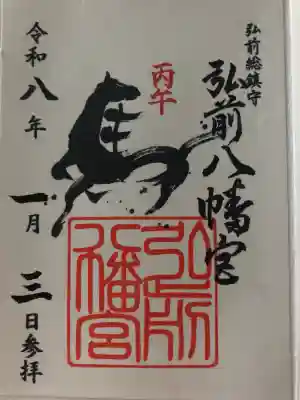 弘前総鎮守
弘前八幡宮
丙午
馬
令和八年
一月三日参拝
弘前
八幡宮